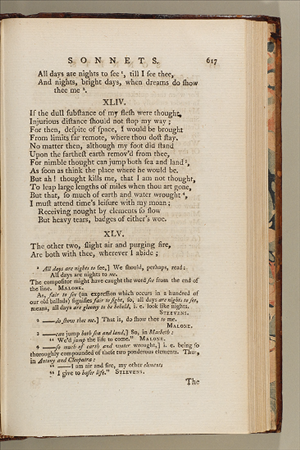 SONNETS. 617
All days are nights to ſee ¹, till I ſee thee,
And nights, bright days, when dreams do ſhow
thee me ².
XLIV.
If the dull ſubſtance of my fleſh were thought,
Injurious diſtance ſhould not ſtop my way;
For then, deſpite of ſpace, I would be brought
From limits far remote, where thou doſt ſtay.
No matter then, although my foot did ſtand
Upon the fartheſt earth remov'd from thee,
For nimble thought can jump both ſea and land ³,
As ſoon as think the place where he would be.
But ah! thought kills me, that I am not thought,
To leap large lengths of miles when thou art gone,
But that, ſo much of earth and water wrought ⁴,
I muſt attend time's leiſure with my moan;
Receiving nought by elements ſo ſlow
But heavy tears, badges of either's woe.
XLV.
The other two, ſlight air and purging fire,
Are both with thee, wherever I abide;
All days are nights to ſee,] We ſhould, perhaps, read:
All days are nights to me.
The compoſitor might have caught the word ſee from the end of
the line. MALONE.
As, fair to ſee (an expreſſion which occurs in a hundred of
our old ballads) ſignifies fair to ſight, ſo, all days are nights to ſee,
means, all days are gloomy to behold, i. e. look like nights.
STEEVENS.
—do ſhow thee me.] That is, do ſhow thee to me.
MALONE.
—can jump both ſea and land,] So, in Macbeth:
"We'd jump the life to come." MALONE.
—ſo much of earth and water wrought,] i. e. being ſo
thoroughly compounded of theſe two ponderous elements. Thus,
in Antony and Cleopatra:
"—I am air and fire, my other elements
"I give to baſer life." STEEVENS.
The